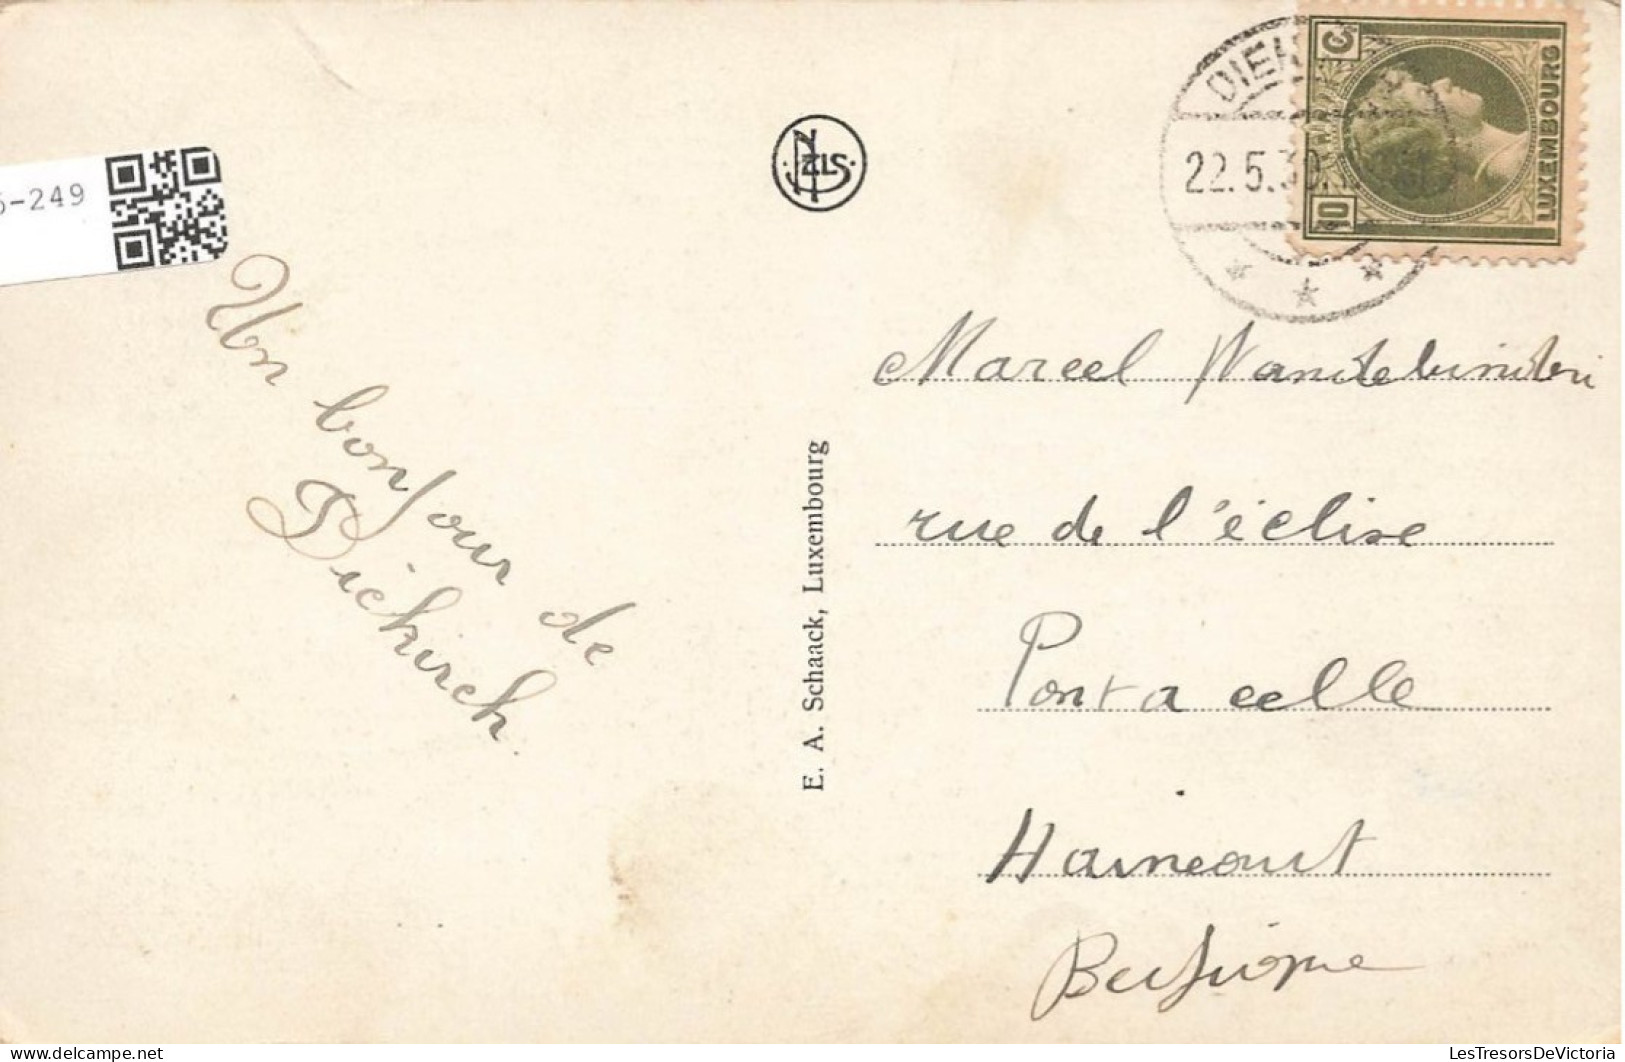 DIEK
22.5.30.
10 C
LUXEMBOURG
STZ
5-249
Un bonjour de
Diekirch.
E. A. Schaack, Luxembourg
Marcel
rue de l'éclise
Pont a celle
Haineout
Belgique
LesTresorsDeVictoria
delcampe.net